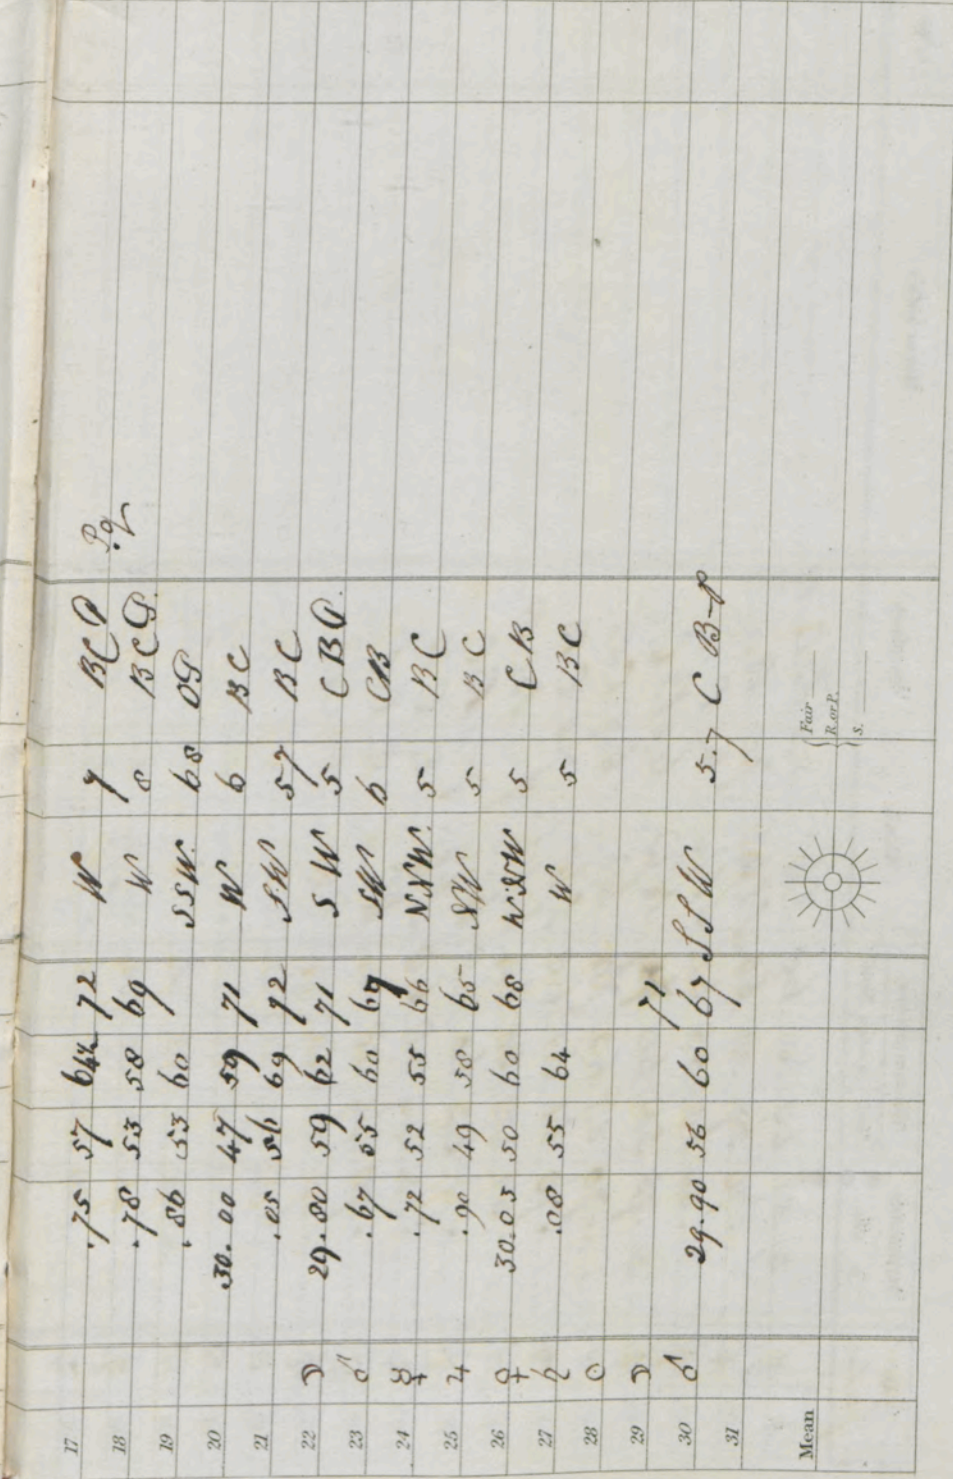 17 .75 57 64½ 72 W 7 BCP P.q
18 .78 53 58 69 W 8 BCP.
19 .86 53 60 SSW. 68 OP
20 30.00 47 59 71 W 6 BC
21 .05 56 69 72 SW 57 BC
22 ☽ 29.80 59 62 71 SW 5 CBP.
23 ♂ .67 55 60 67 SW 6 CB
24 ☿ .72 52 55 66 NNW. 5 BC
25 ♃ .90 49 58 65 NW 5 BC
26 ♀ 30.05 50 60 68 WNW 5 CB
27 ♄ .08 55 64 W 5 BC
28 ☉
29 ☽ 71
30 ♂ 29.90 56 60 67 SSW 5.7 CB-P
31
Mean
Fair
R. or P.
S.